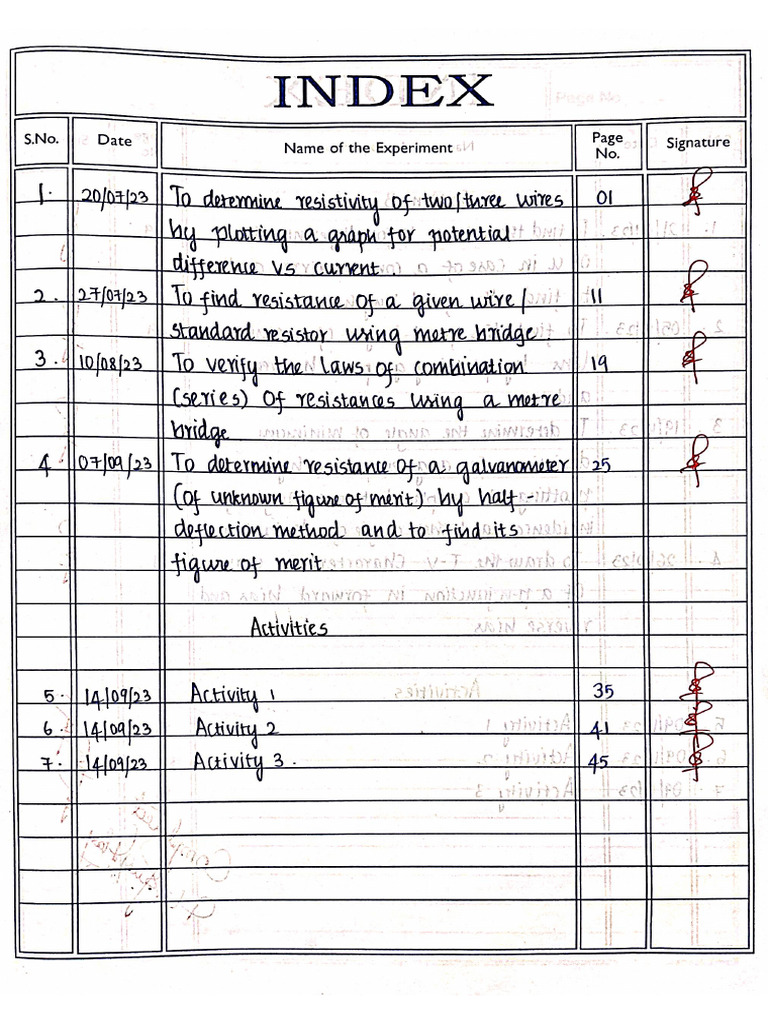 INDEX
S.No. Date Name of the Experiment Page No. Signature
1. 20/07/23 To determine resistivity of two/three wires 01
by plotting a graph for potential
difference vs current.
2. 27/07/23 To find resistance of a given wire/ 11
standard resistor using metre bridge
3. 10/08/23 To verify the laws of combination 19
(series) Of resistances using a metre
bridge
4. 07/09/23 To determine resistance of a galvanometer 25
(of unknown figure of merit) by half-
deflection method and to find its
figure of merit.
Activities
5. 14/09/23 Activity 1 35
6. 14/09/23 Activity 2 41
7. 14/09/23 Activity 3. 45